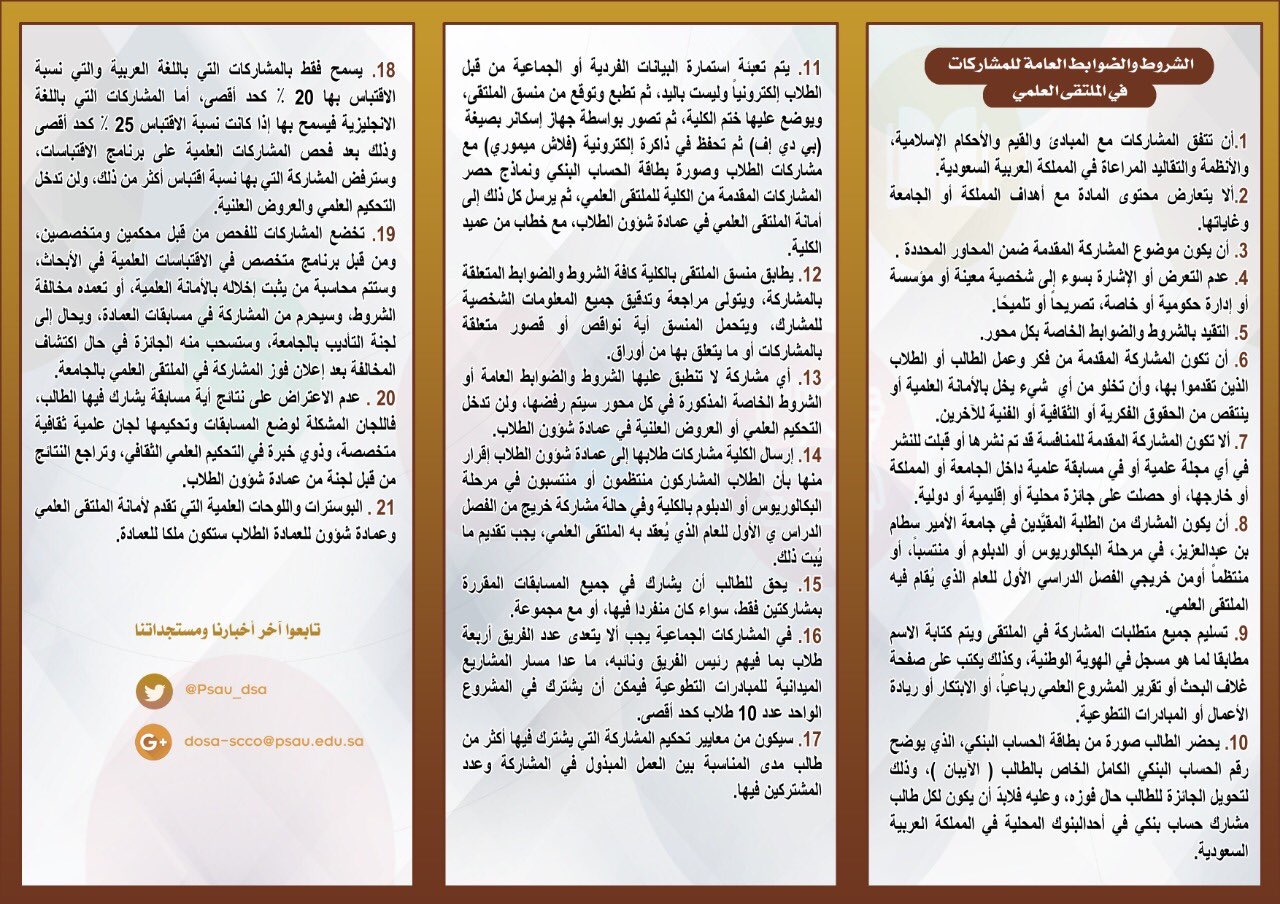 الشروط والضوابط العامة للمشاركات
في الملتقى العلمي
1.أن تتفق المشاركات مع المبادئ والقيم والأحكام الإسلامية،
والأنظمة والتقاليد المراعاة في المملكة العربية السعودية.
2.ألا يتعارض محتوى المادة مع أهداف المملكة أو الجامعة
وغاياتها.
3. أن يكون موضوع المشاركة المقدمة ضمن المحاور المحددة .
4. عدم التعرض أو الإشارة بسوء إلى شخصية معينة أو مؤسسة
أو إدارة حكومية أو خاصة، تصريحاً أو تلميحًا.
5. التقيد بالشروط والضوابط الخاصة بكل محور.
6. أن تكون المشاركة المقدمة من فكر وعمل الطالب أو الطلاب
الذين تقدموا بها، وأن تخلو من أي شيء يخل بالأمانة العلمية أو
ينتقص من الحقوق الفكرية أو الثقافية أو الفنية للآخرين.
7. ألا تكون المشاركة المقدمة للمنافسة قد تم نشرها أو قبلت للنشر
في أي مجلة علمية أو في مسابقة علمية داخل الجامعة أو المملكة
أو خارجها، أو حصلت على جائزة محلية أو إقليمية أو دولية.
8. أن يكون المشارك من الطلبة المقيَّدين في جامعة الأمير سطام
بن عبدالعزيز، في مرحلة البكالوريوس أو الدبلوم أو منتسباً، أو
منتظماً أومن خريجي الفصل الدراسي الأول للعام الذي يُقام فيه
الملتقى العلمي.
9. تسليم جميع متطلبات المشاركة في الملتقى ويتم كتابة الاسم
مطابقا لما هو مسجل في الهوية الوطنية، وكذلك يكتب على صفحة
غلاف البحث أو تقرير المشروع العلمي رباعياً، أو الابتكار أو ريادة
الأعمال أو المبادرات التطوعية.
10. يحضر الطالب صورة من بطاقة الحساب البنكي، الذي يوضح
رقم الحساب البنكي الكامل الخاص بالطالب ( الآيبان )، وذلك
لتحويل الجائزة للطالب حال فوزه، وعليه فلابدّ أن يكون لكل طالب
مشارك حساب بنكي في أحدالبنوك المحلية في المملكة العربية
السعودية.
11. يتم تعبئة استمارة البيانات الفردية أو الجماعية من قبل
الطلاب إلكترونياً وليست باليد، ثم تطبع وتوقع من منسق الملتقى،
ويوضع عليها ختم الكلية، ثم تصور بواسطة جهاز إسكانر بصيغة
(بي دي إف) ثم تحفظ في ذاكرة إلكترونية (فلاش ميموري) مع
مشاركات الطلاب وصورة بطاقة الحساب البنكي ونماذج حصر
المشاركات المقدمة من الكلية للملتقى العلمي، ثم يرسل كل ذلك إلى
أمانة الملتقى العلمي في عمادة شؤون الطلاب، مع خطاب من عميد
الكلية.
12. يطابق منسق الملتقى بالكلية كافة الشروط والضوابط المتعلقة
بالمشاركة، ويتولى مراجعة وتدقيق جميع المعلومات الشخصية
للمشارك، ويتحمل المنسق أية نواقص أو قصور متعلقة
بالمشاركات أو ما يتعلق بها من أوراق.
13. أي مشاركة لا تنطبق عليها الشروط والضوابط العامة أو
الشروط الخاصة المذكورة في كل محور سيتم رفضها، ولن تدخل
التحكيم العلمي أو العروض العلنية في عمادة شؤون الطلاب.
14. إرسال الكلية مشاركات طلابها إلى عمادة شؤون الطلاب إقرار
منها بأن الطلاب المشاركون منتظمون أو منتسبون في مرحلة
البكالوريوس أو الدبلوم بالكلية وفي حالة مشاركة خريج من الفصل
الدراس ي الأول للعام الذي يُعقد به الملتقى العلمي، يجب تقديم ما
يُبت ذلك.
15. يحق للطالب أن يشارك في جميع المسابقات المقررة
بمشاركتين فقط، سواء كان منفردا فيها، أو مع مجموعة.
16. في المشاركات الجماعية يجب ألا يتعدى عدد الفريق أربعة
طلاب بما فيهم رئيس الفريق ونائبه، ما عدا مسار المشاريع
الميدانية للمبادرات التطوعية فيمكن أن يشترك في المشروع
الواحد عدد 10 طلاب كحد أقصى.
17. سيكون من معايير تحكيم المشاركة التي يشترك فيها أكثر من
طالب مدى المناسبة بين العمل المبذول في المشاركة وعدد
المشتركين فيها.
18. يسمح فقط بالمشاركات التي باللغة العربية والتي نسبة
الاقتباس بها 20 ٪ كحد أقصى، أما المشاركات التي باللغة
الانجليزية فيسمح بها إذا كانت نسبة الاقتباس 25 ٪ كحد أقصى
وذلك بعد فحص المشاركات العلمية على برنامج الاقتباسات،
وسترفض المشاركة التي بها نسبة اقتباس أكثر من ذلك، ولن تدخل
التحكيم العلمي والعروض العلنية.
19. تخضع المشاركات للفحص من قبل محكمين ومتخصصين،
ومن قبل برنامج متخصص في الاقتباسات العلمية في الأبحاث،
وستتم محاسبة من يثبت إخلاله بالأمانة العلمية، أو تعمده مخالفة
الشروط، وسيحرم من المشاركة في مسابقات العمادة، ويحال إلى
لجنة التأديب بالجامعة، وستسحب منه الجائزة في حال اكتشاف
المخالفة بعد إعلان فوز المشاركة في الملتقى العلمي بالجامعة.
20 . عدم الاعتراض على نتائج أية مسابقة يشارك فيها الطالب،
فاللجان المشكلة لوضع المسابقات وتحكيمها لجان علمية ثقافية
متخصصة، وذوي خبرة في التحكيم العلمي الثقافي، وتراجع النتائج
من قبل لجنة من عمادة شؤون الطلاب.
21 . البوسترات واللوحات العلمية التي تقدم لأمانة الملتقى العلمي
وعمادة شؤون للعمادة الطلاب ستكون ملكا للعمادة.
تابعوا آخر أخبارنا ومستجداتنا
@Psau_dsa
G+ dosa-scco@psau.edu.sa